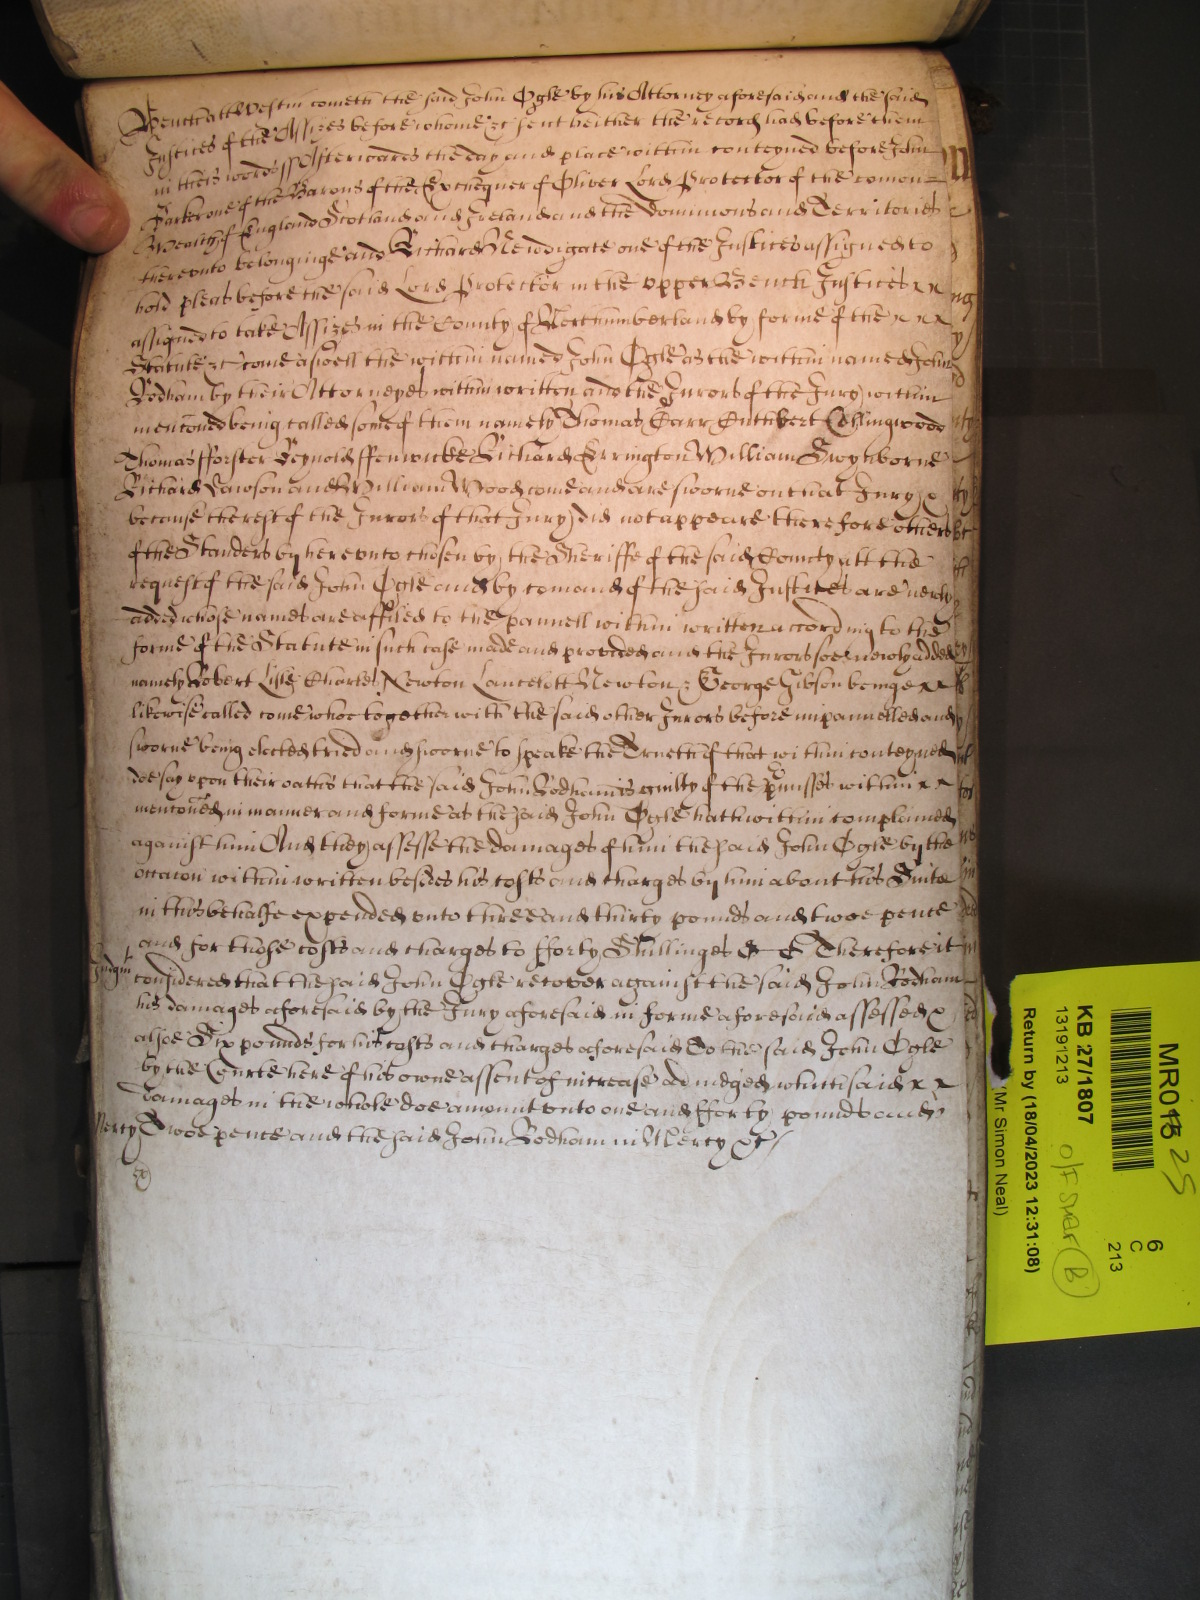 Bench att Westm cometh the said John Ogle by his Attorney aforesaid and the said
Justices of the Assizes before whome &c sent heither the record had before them
in theis words ss Afterwards the day and place within conteyned before John
Parker one of the Barons of the Exchequer of Oliver Lord Protector of the comon=
Wealth of England Scotland and Ireland and the dominions and Territories
therevnto belonginge and Richard Newdigate one of the Justices assigned to
hold pleas before the said Lord Protector in the vpper Bench Justices x x
assigned to take Assizes in the County of Northumberland by forme of the x x x
Statute &c come aswell the within named John Ogle as the within named John
Rodham by their Attorneyes within written and the Jurors of the Jury within
mentoned being called some of them namely Thomas Carr Cuthbert Collingwood
Thomas fforster Reynold ffenwicke Richard Errington William Swynborne
Richard Lawson and William Wood come and are sworne on that Jury x
because the rest of the Jurors of that Jury did not appeare therefore others
of the Standers by herevnto chosen by the Sheriffe of the said County att the
request of the said John Ogle and by comand of the said Justices are newly
added whose names are affiled to the pannell within written according to the
forme of the Statute in such case made and provided and the Jurors soe newly added
namely Robert Lisle Charles Newton Lancelott Newton : George Gibson beinge x x
likewise called come whoe together with the said other Jurors before impannelled and
sworne being elected tried and sworne to speake the Trueth of that within conteyned
doe say vpon their oathes that the said John Rodham is guilty of the pmisses within x x
mentoned in manner and forme as the said John Ogle hath within complained
against him And they assesse the damages of him the said John Ogle by the
occacon within written besides his costs and charges by him about his Suite
in this behalfe expended vnto three and thirty pounds and twoe pence
and for those costs and charges to fforty Shillinges & & Therefore it
Judgmt considered that the said John Ogle recover against the said John Rodham
his damages aforesaid by the Jury aforesaid in forme aforesaid assessed x
alsoe Six pounds for his costs and charges aforesaid To the said John Ogle
by the Courte here of his owne assent of increase adiudged which said x x
damages in the whole doe amount vnto one and fforty pounds and
Mercy Twoe pence and the said John Rodham in Mercy &c
MR018 25
6
C
213
KB 27/1807
13191213
O/F SMAF B
Return by (18/04/2023 12:31:08)
(Mr Simon Neal)